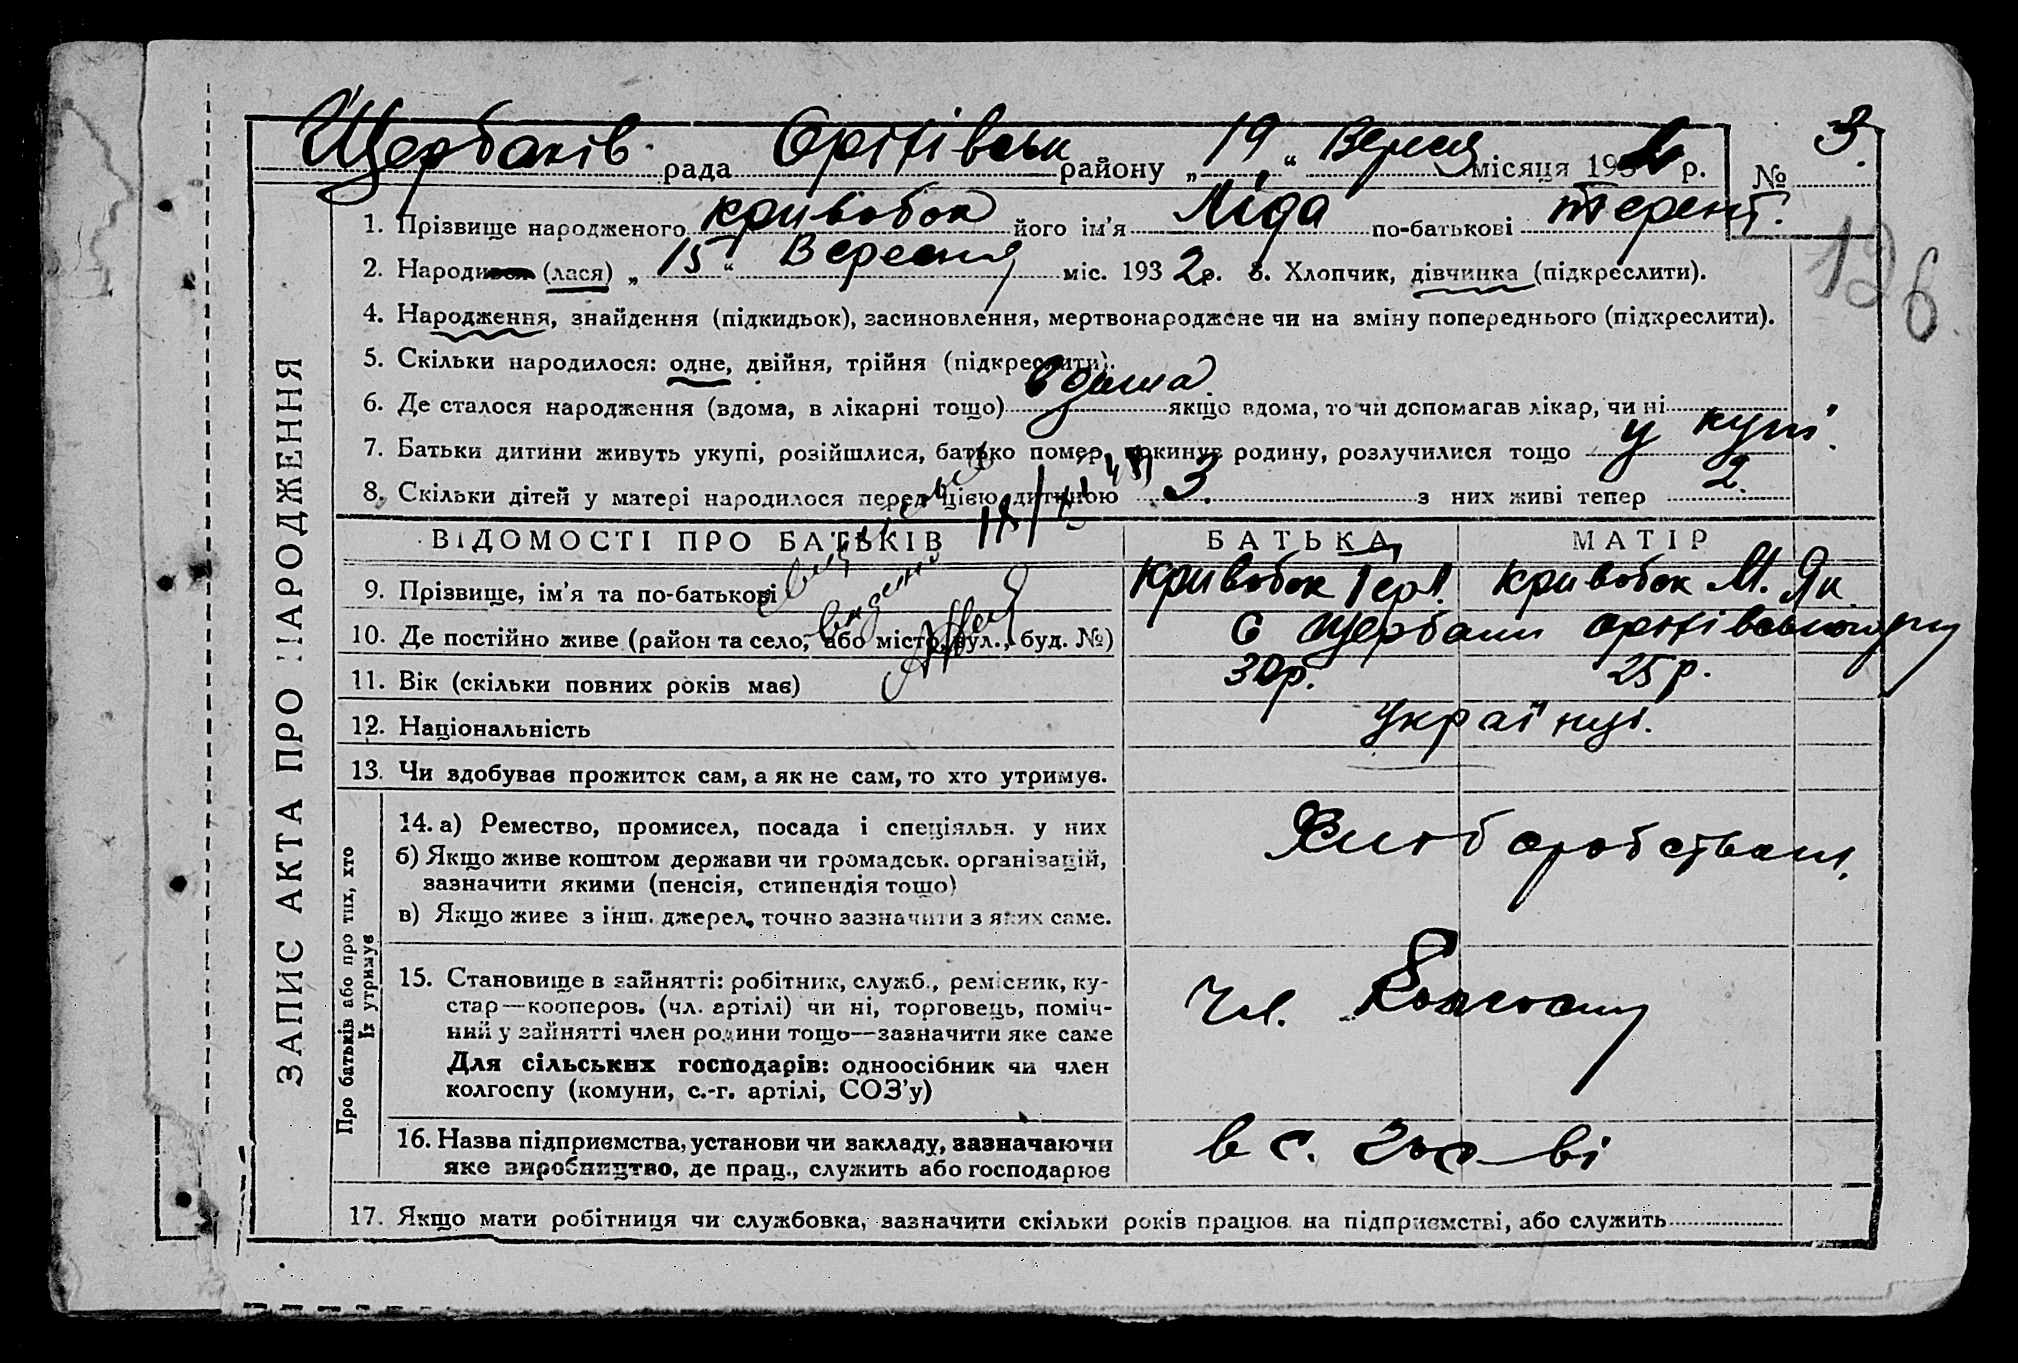 Щербаків рада Оріхівськ району „ 19 “ Вересня місяця 1932 р. № 3.
126
ЗАПИС АКТА ПРО НАРОДЖЕННЯ
1. Прізвище народженого Кривобок його ім'я Ліда по-батькові Терент.
2. Народився (лася) „ 15 “ Вересня міс. 1932 р. 3. Хлопчик, дівчинка (підкреслити).
4. Народження, знайдення (підкидьок), засиновлення, мертвонароджене чи на зміну попереднього (підкреслити).
5. Скільки народилося: одне, двійня, трійня (підкреслити).
6. Де сталося народження (вдома, в лікарні тощо) вдома якщо вдома, то чи допомагав лікар, чи ні
7. Батьки дитини живуть укупі, розійшлися, батько помер, покинув родину, розлучилися тощо у купі.
8. Скільки дітей у матері народилося перед цією дитиною 3. з них живі тепер 2.
ВІДОМОСТІ ПРО БАТЬКІВ БАТЬКА МАТІР
9. Прізвище, ім'я та по-батькові Кривобок Тер. Кривобок М. Як
10. Де постійно живе (район та село, або місто, вул., буд. №) С Щербаки Оріхівського р-ну
11. Вік (скільки повних років має) 30р. 25р.
12. Національність Українці.
13. Чи здобуває прожиток сам, а як не сам, то хто утримує.
Про батьків або про тих, хто їх утримує
14. а) Ремество, промисел, посада і спеціяльн. у них
б) Якщо живе коштом держави чи громадськ. організацій,
зазначити якими (пенсія, стипендія тощо)
в) Якщо живе з інш. джерел, точно зазначити з яких саме.
Хліборобством.
15. Становище в зайнятті: робітник, служб., ремісник, ку-
стар—кооперов. (чл. артілі) чи ні, торговець, поміч-
ний у зайнятті член родини тощо—зазначити яке саме
Для сільських господарів: одноосібник чи член
колгоспу (комуни, с.-г. артілі, СОЗ'у)
Чл. Колгоспу
16. Назва підприємства, установи чи закладу, зазначаючи
яке виробництво, де прац., служить або господарює
в с. гос-ві
17. Якщо мати робітниця чи службовка, зазначити скільки років працює на підприємстві, або служить